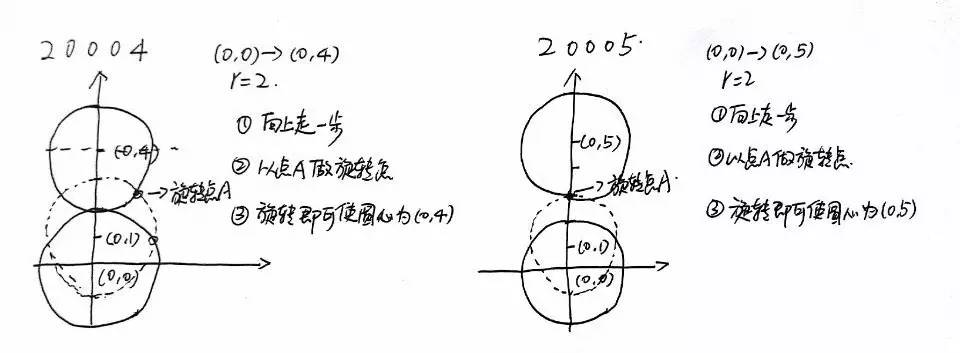 20004
(0,0)→(0,4)
r=2.
①向上走一步
②以点A做旋转点
③旋转即可使圆心为(0,4)
(0,4)
→旋转点A
(0,1)
(0,0)
20005.
(0,0)→(0,5)
r=2
①向上走一步
②以点A做旋转点.
③旋转即可使圆心为(0,5)
(0,5)
→旋转点A.
(0,1)
(0,0)